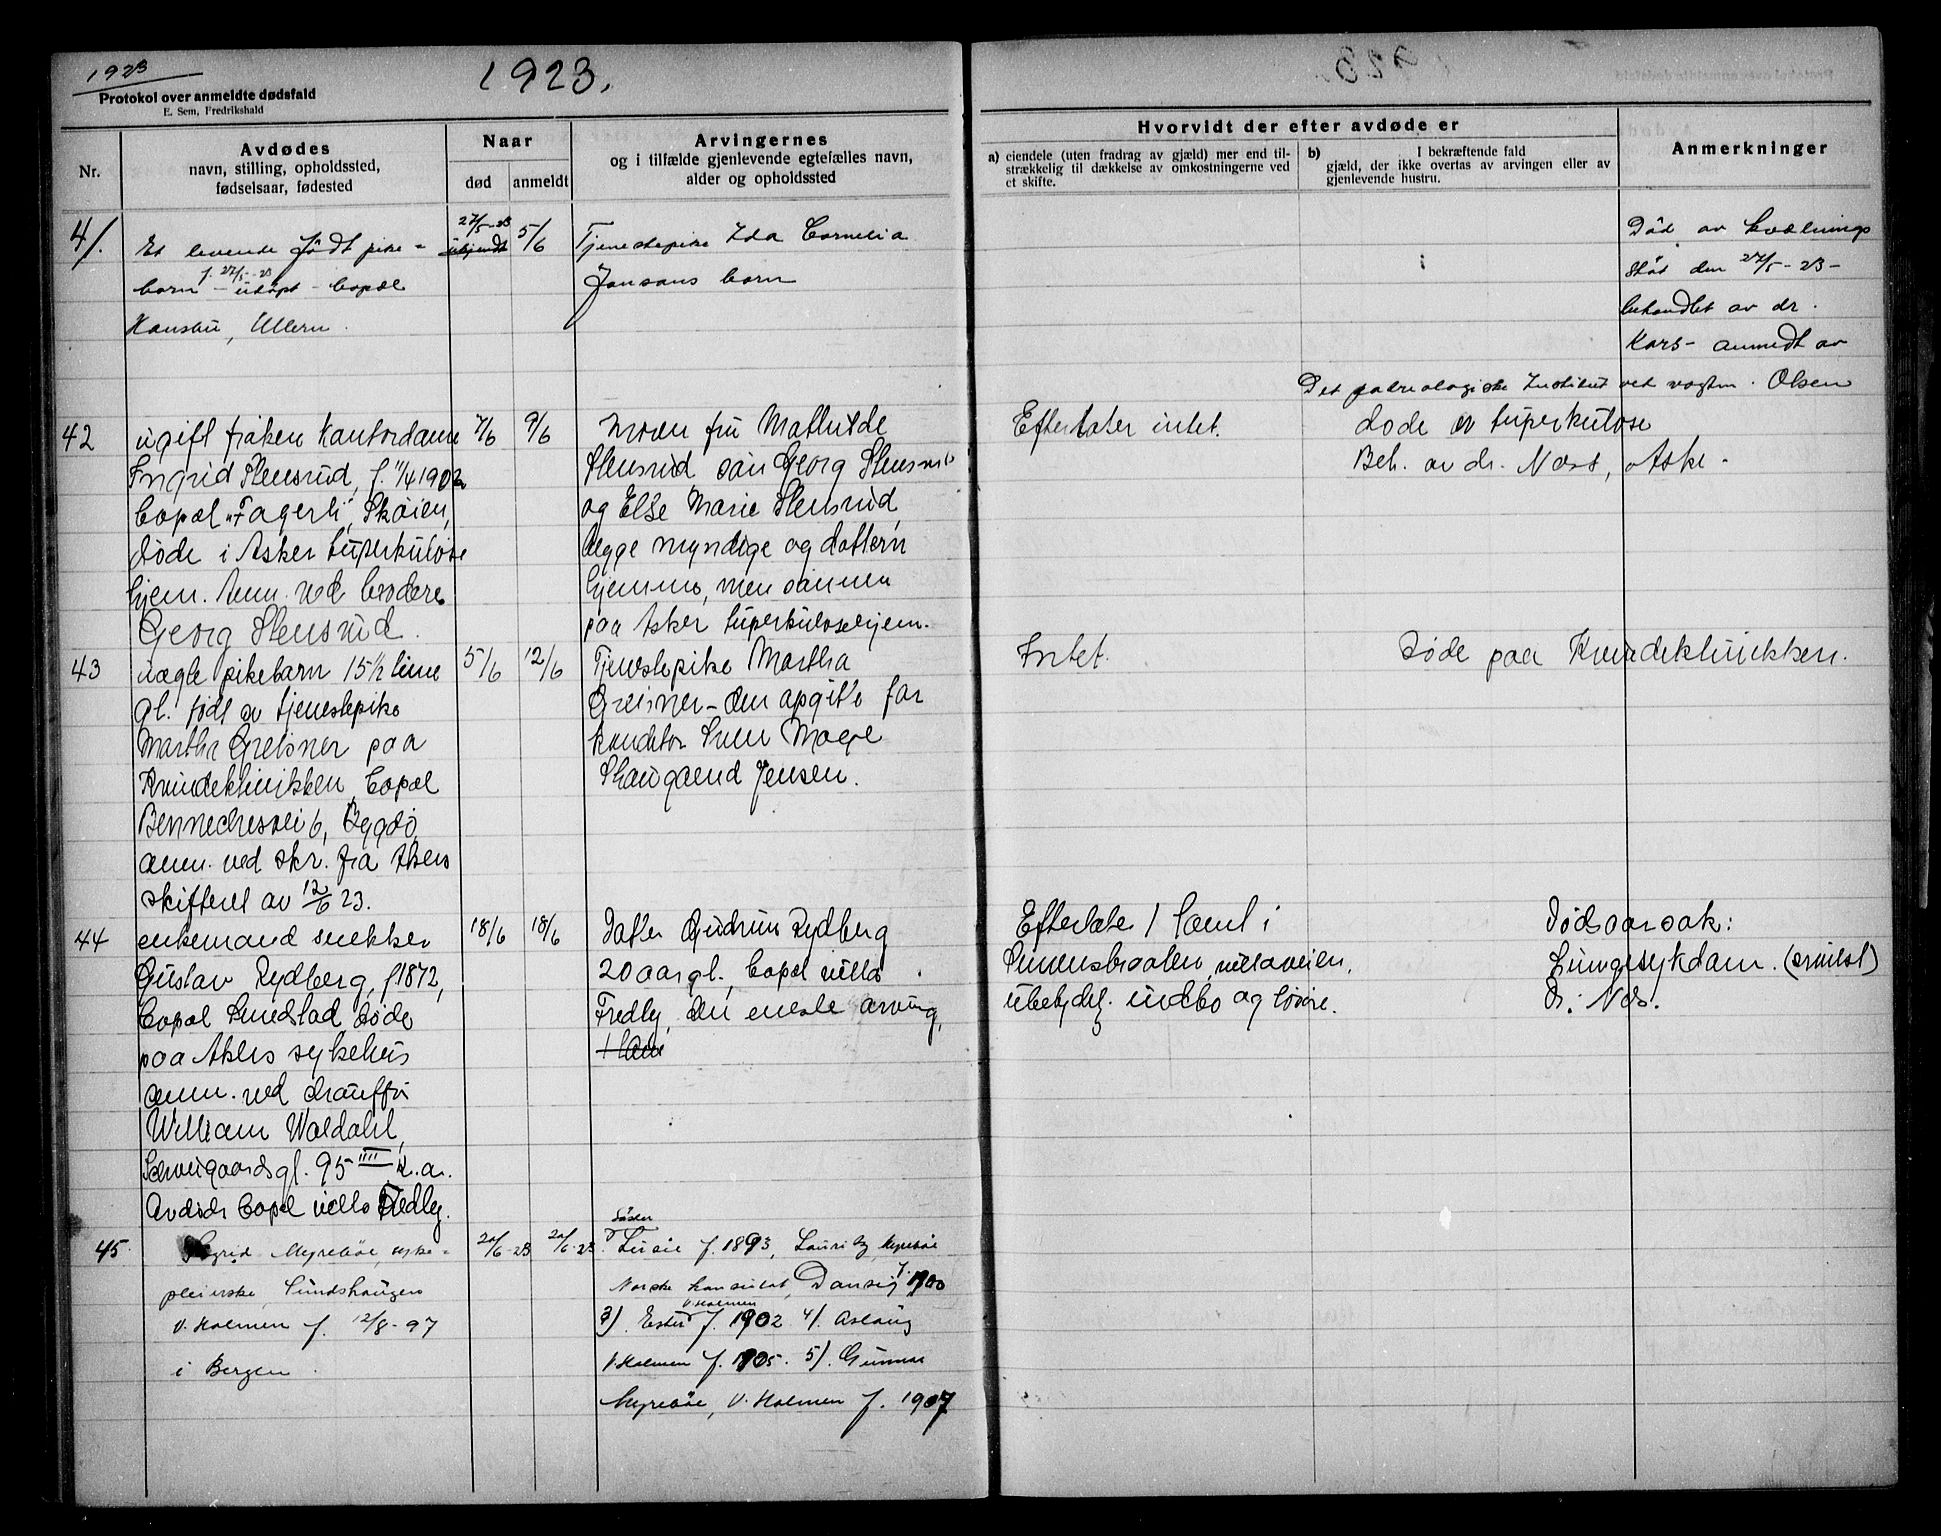 1923
1923.
Protokol over anmeldte dødsfald
E. Sem, Fredrikshald
Nr.
Avdødes
navn, stilling, opholdssted,
fødselsaar, fødested
Naar
død
anmeldt
Arvingernes
og i tilfælde gjenlevende egtefælles navn,
alder og opholdssted
Hvorvidt der efter avdøde er
a) eiendele (uten fradrag av gjæld) mer end til-
strækkelig til dækkelse av omkostningerne ved
et skifte.
b) I bekræftende fald
gjæld, der ikke overtas av arvingen eller av
gjenlevende hustru.
Anmerkninger
41.
Et levende født pike-
f. 27/5-23
barn - udøpt - bopæl
Hansbu, Ullern.
27/5-23
ukjendt
5/6
Tjenestepike Ida Cornelia
Jansons barn
Død av kvælnings
den 27/5-23-
behandlet av dr.
Kors- anmedt av
Det Institut ved vagtm. Olsen
42
ugift frøken kontordame
Ingrid Stensrud, f. 11/4 1902
bopæl "Fagerli", Skøien,
døde i Asker tuperkuløse
hjem. Anm. ved broderen
Georg Stensrud.
7/6
9/6
moren fru Mathilde
Stensrud søn Georg Stensrud
og Else Marie Stensrud,
begge myndige og dattern
hjemme, men sønnen
paa Asker tuperkuløsehjem.
Efterlater intet.
døde av tuperkulose
Beh. av dr. Næss, Aske-
43
uægte pikebarn 15 1/2 time
gl. født av tjenestepike
Martha Greisner paa
Kvindeklinikken, bopæl
Bennechesvei 6, Bygdø,
anm. ved skr. fra Akers
skifteret av 12/6 23.
5/6
12/6
Tjenestepike Martha
Greisner - den opgitte far
konditor Sven Mage
Skaugaend Jensen.
Intet.
Døde paa Kvindeklinikken.
44
enkemand snekker
Gustav Rydberg, f 1872,
bopæl Smestad døde
paa Akers sykehus
anm. ved chauffør
William Waldahl,
95 IIII K.a.
Avdøde bopæl villa Fredly.
18/6
18/6
Datter Gudrun Rydberg
20 aar gl. bopæl villa
Fredly, den eneste arving,
Efterlater 1 tomt i
villaveien,
ubetydel. indbo og løsøre.
Dødsaarsak:
Lungesykdom.
Dr. Næs.
45.
Sigrid Myrebøe, syke-
pleierske, Lundshaugen
v. Holmen f. 12/8-97
i Bergen.
20/6-23
20/6-23
Søster
Lucie f. 1893, Lauritz Myrebøe
Norske konsulat, Danzig f. 1900
v. Holmen
3). Ester f. 1902 4). Aslaug
v. Holmen f. 1905. 5). Gunnar
Myrebøe, v. Holmen f. 1907